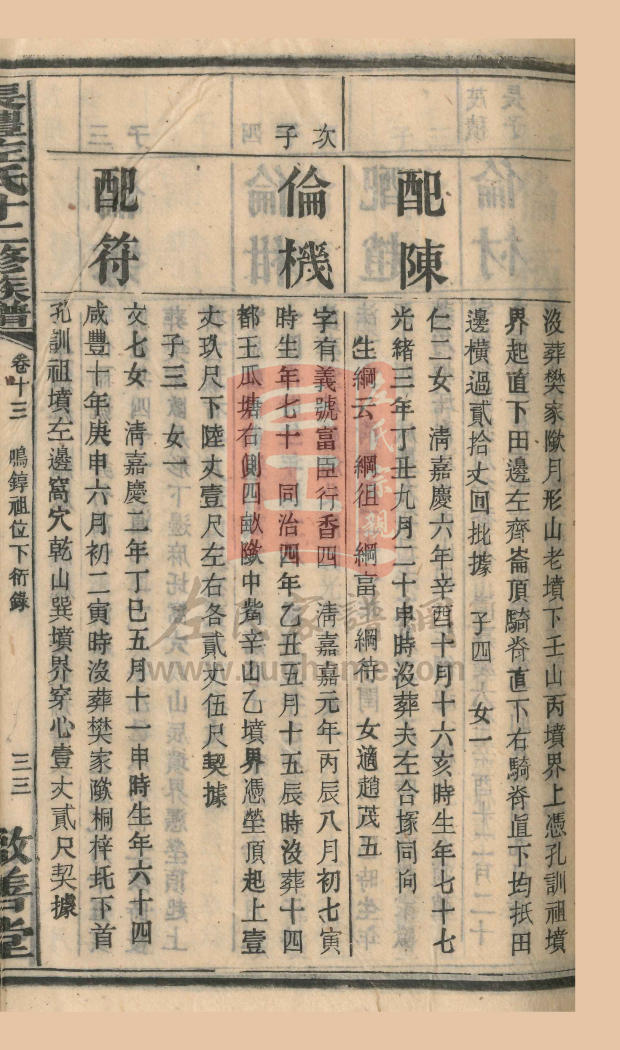 沒葬樊家㘭月形山老墳下壬山丙墳界上憑孔訓祖墳
界起直下田邊左齊崙頂騎脊直下右騎脊直下均抵田
邊橫過貳拾丈回批據 子四 女一
配陳
仁二女 淸嘉慶六年辛酉十月十六亥時生年七十七
光緒三年丁丑九月二十申時沒葬夫左合塚同向
生綱云 綱徂 綱富 綱待 女適趙茂五
次子
倫機
字有義號富臣行香四 淸嘉嘉元年丙辰八月初七寅
時生年七十 同治四年乙丑五月十五辰時沒葬十四
都王瓜塘右側四畝㘭中嘴辛山乙墳界憑塋頂起上壹
丈玖尺下陸丈壹尺左右各貳丈伍尺契據
子三 女一
配符
文七女 淸嘉慶二年丁巳五月十一申時生年六十四
咸豐十年庚申六月初二寅時沒葬樊家㘭桐梓圫下首
孔訓祖墳左邊窩穴乾山巽墳界穿心壹丈貳尺契據
長澧左氏十二修族譜
卷十三 鳴錞祖位下衍錄
三三
敦善堂
左氏宗親
左氏家譜網
www.zuqhome.com